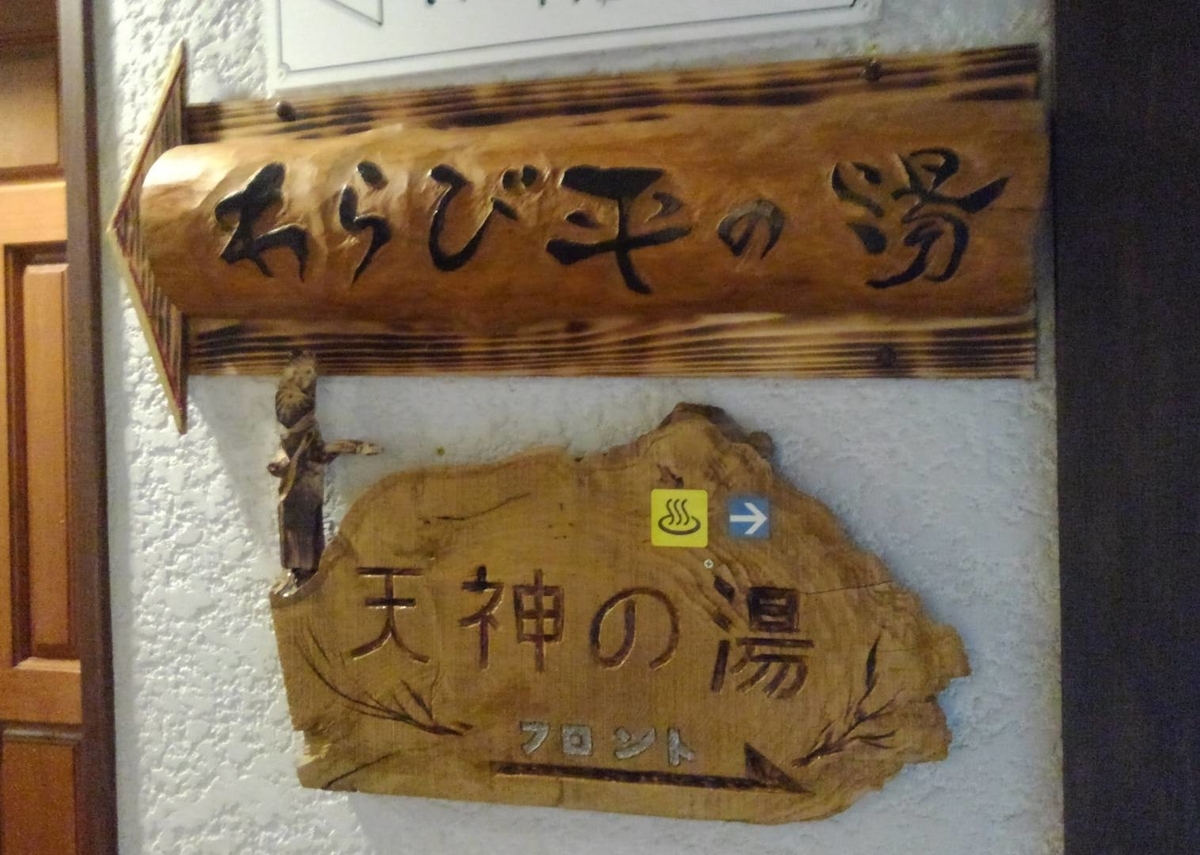 わらび平の湯
天神の湯
フロント